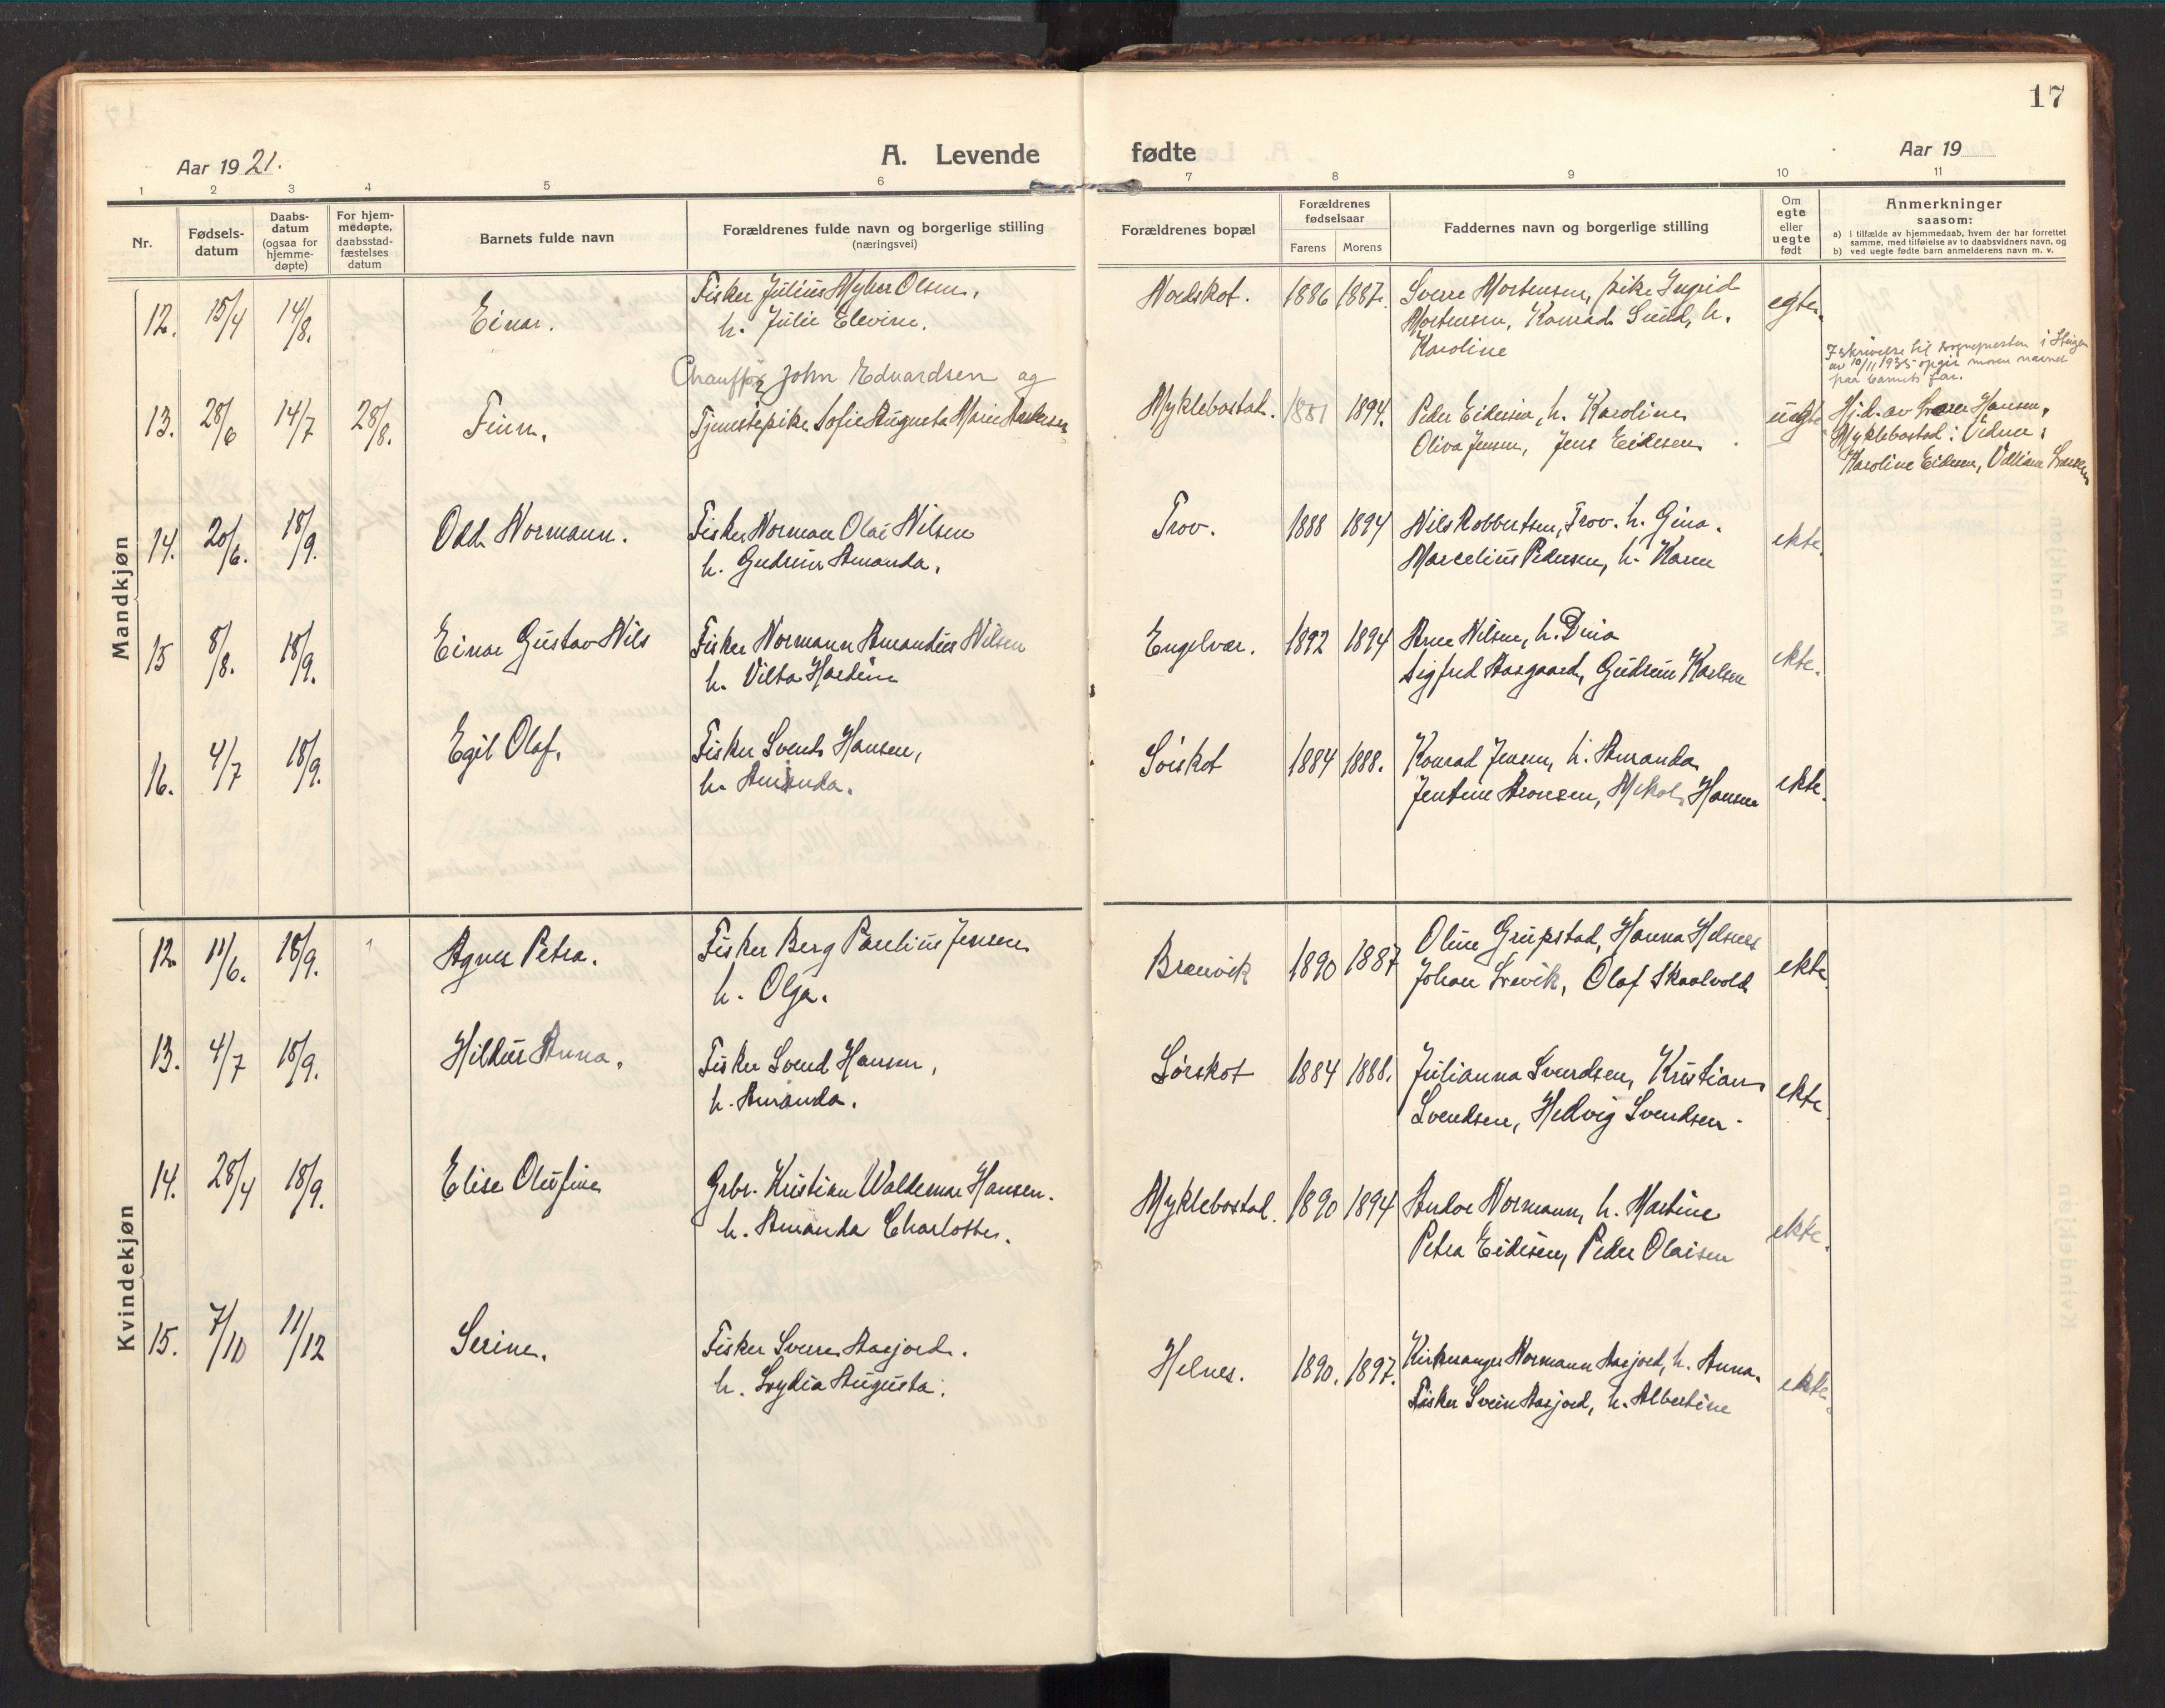 17
Aar 1921.
A. Levende fødte
Aar 19
1 2 3 4 5 6 7 8 9 10 11
Nr.
Fødsels-
datum
Daabs-
datum
(ogsaa for
hjemme-
døpte)
For hjem-
medøpte,
daabsstad-
fæstelses
datum
Barnets fulde navn
Forældrenes fulde navn og borgerlige stilling
(næringsvei)
Forældrenes bopæl
Forældrenes
fødselsaar
Farens Morens
Faddernes navn og borgerlige stilling
Om
egte
eller
uegte
født
Anmerkninger
saasom:
a) i tilfælde av hjemmedaab, hvem der har forrettet
samme, med tilføielse av to daabsvidners navn, og
b) ved uegte fødte barn anmelderens navn m. v.
Mandkjøn
12. 15/4 14/8. Einar.
Fisker Julius Myhre Olsen,
h. Julie Elevine.
Nordskot. 1886 1887.
Sverre Mortensen, pike Ingrid
Mortensen, Konrad Sund, h.
Karoline
egte.
13. 28/6 14/7 28/8. Finn.
Chauffør John Edvardsen og
Tjenestepike Sofie Augusta Marie
Myklebostad. 1881 1894.
Peder Eidesen, h. Karoline
Oliva Jensen, Jens Eidesen
uegte
I skrivelse til sognepresten i Steigen
av 10/11 1935 opgir moren navnet
paa barnets far.
Hj.d. av Hansen,
Myklebostad: Vidner:
Karoline Eidesen,
14. 20/6. 18/9. Odd Normann.
Fisker Norman Olai Nilsen
h. Gudrun Amanda.
Trov. 1888 1894
Nils Robbertsen, Trov. h. Gina.
Marcelius Pedersen, h. Karen
ekte.
15 8/8. 18/9. Einar Gustav Nils
Fisker Normann Amandus Nilsen
h. Vilba Hartine
Engelvær. 1892 1894
Arne Nilsen, h. Dina
Sigfred Aasgaard, Gudrun Karlsen
ekte.
16. 4/7 18/9. Egil Olaf.
Fisker Svend Hansen,
h. Amanda.
Sørskot 1884 1888.
Konrad Jensen, h. Amanda
Jentine Aronsen, Mikal Hansen
ekte.
Kvindekjøn
12. 11/6. 18/9. Agnes Petra.
Fisker Berg Paulius Jensen
h. Olga.
Brænvik 1890 1887
Oline Grupstad, Hanna Helnes
Johan Srevik, Olaf Skaalvold
ekte.
13. 4/7 18/9. Hildur Anna.
Fisker Svend Hansen,
h. Amanda.
Sørskot 1884 1888.
Julianna Svendsen, Kristian
Svendsen, Hedvig Svendsen.
ekte.
14. 28/4 18/9. Elise Olufine
Grbr. Kristian Waldemar Hansen.
h. Amanda Charlotte.
Myklebostad. 1890 1894
Andor Normann, h. Martine
Petra Eidesen, Peder Olaisen
ekte.
15. 7/10 11/12 Serine.
Fisker Sverre Aasjord.
h. Lydia Augusta.
Helnes. 1890. 1897.
Kirkesanger Normann Aasjord, h. Anna.
Fisker Svein Aasjord, h. Albertine
ekte.